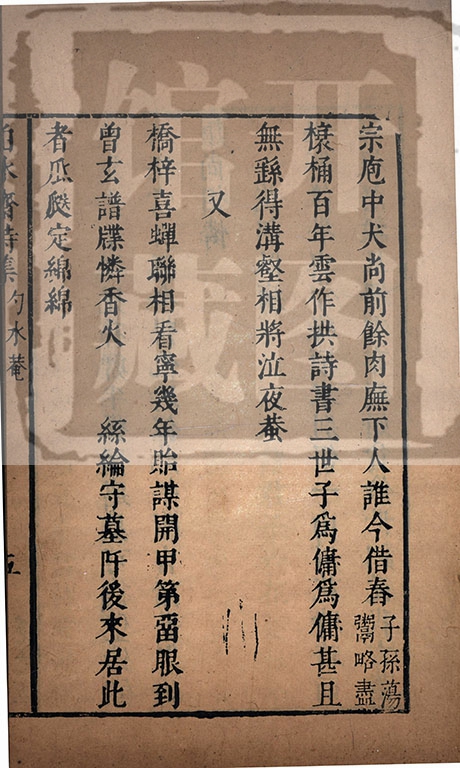 宗庖中犬尚前餘肉廡下人誰今借舂子孫蕩
鬻略盡
榱桷百年雲作拱詩書三世子爲傭爲傭甚且
無繇得溝壑相將泣夜
又
橋梓喜蟬聯相看寧幾年貽謀開甲第畱眼到
曾玄譜牒憐香火 絲綸守墓阡後來居此
者瓜瓞定綿綿
白水齋詩集 勺水菴 五
开图
馆藏